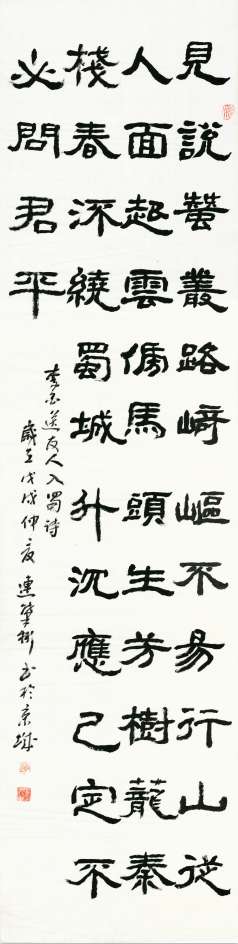 見說蠶叢路崎嶇不易行山從
人面起雲傍馬頭生芳樹蘢秦
棧春流繞蜀城升沉應已定不
必問君平
李白送友人入蜀詩
歲在戊戌仲夏連彬書於京城